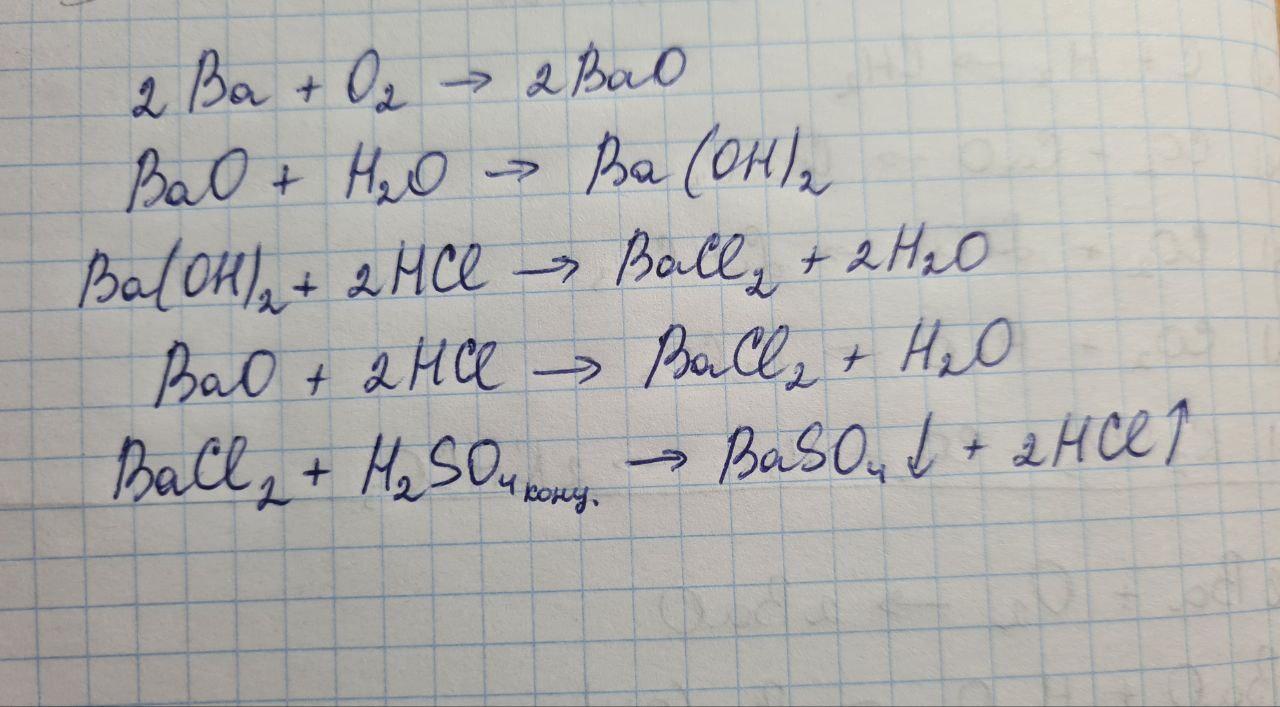 2Ba + O₂ → 2BaO
BaO + H₂O → Ba(OH)₂
Ba(OH)₂ + 2HCl → BaCl₂ + 2H₂O
BaO + 2HCl → BaCl₂ + H₂O
BaCl₂ + H₂SO₄ конц. → BaSO₄↓ + 2HCl↑